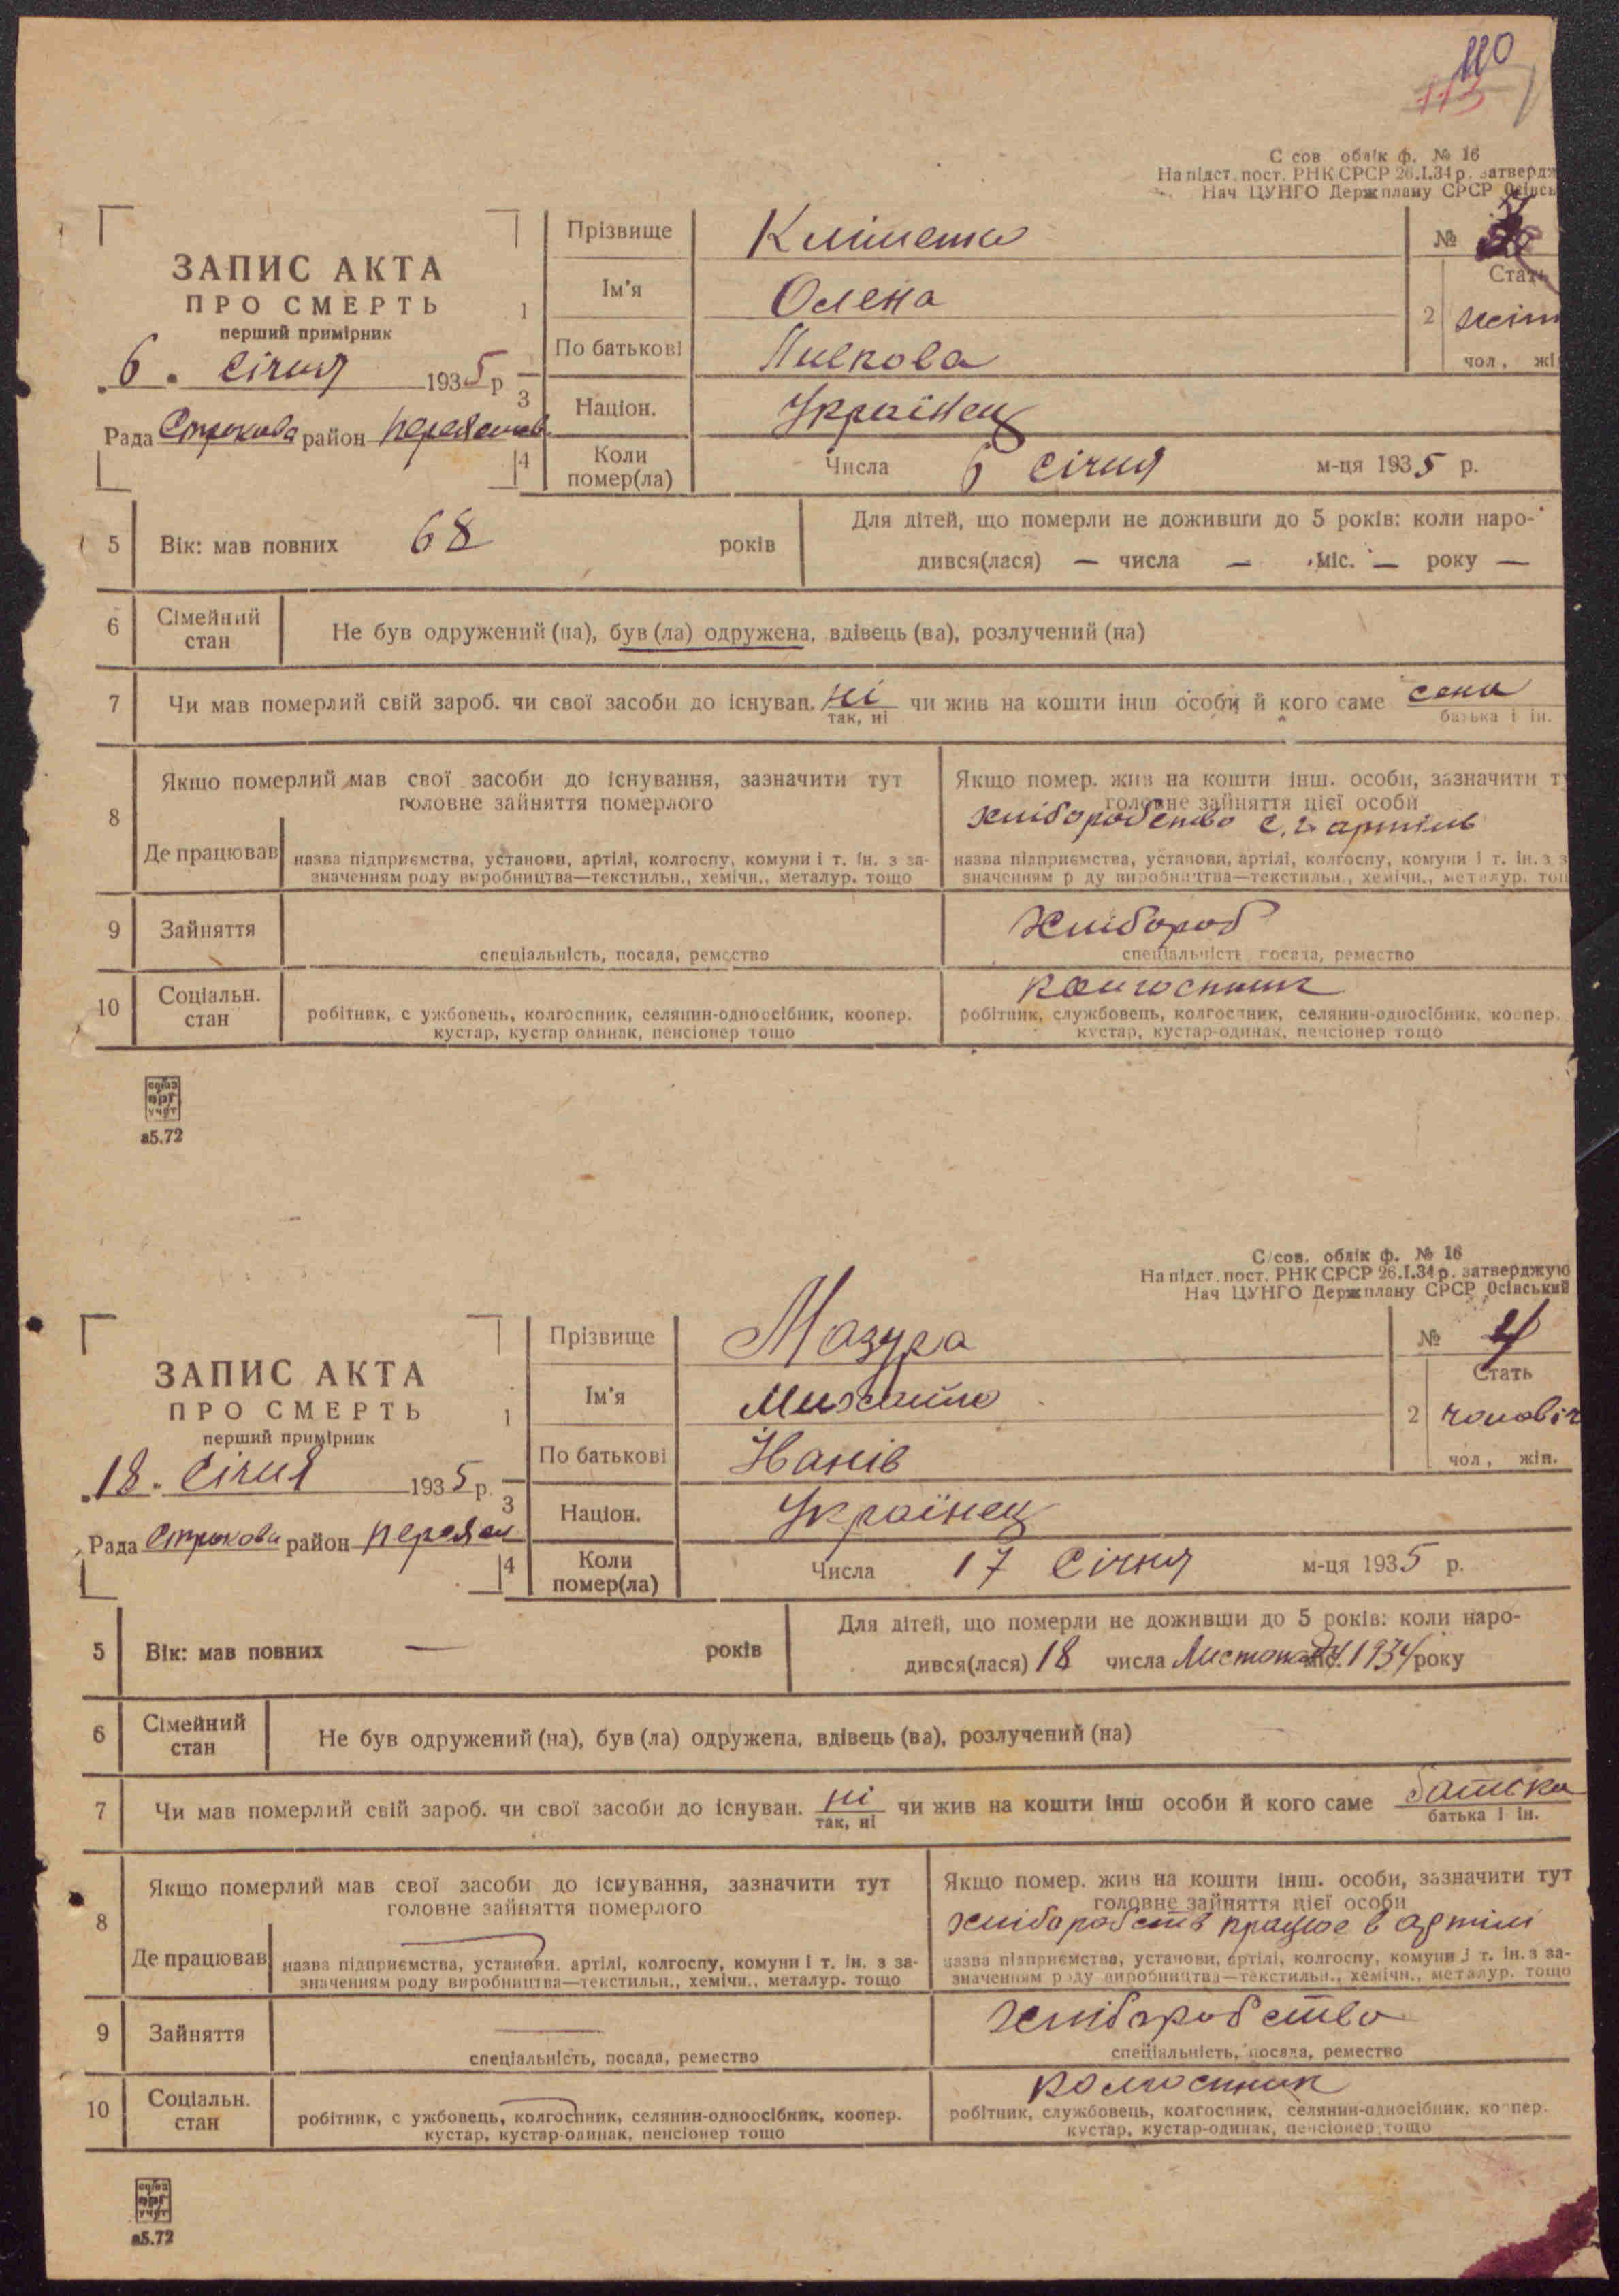 110
113
С сов облік ф. № 16
На підст. пост. РНК СРСР 26.I.34 р. затвердж
Нач ЦУНГО Держплану СРСР Осінсь
ЗАПИС АКТА
ПРО СМЕРТЬ
перший примірник
6. січня 1935 р
Рада Строкова район
1
Прізвище
№
Ім'я Олена
2 Стать жін
чол, жі
По батькові
3 Націон. Українец
4 Коли помер(ла) Числа 6 січня м-ця 1935 р.
5 Вік: мав повних 68 років
Для дітей, що померли не доживши до 5 років: коли наро-
дився(лася) — числа — міс. — року —
6 Сімейний стан Не був одружений (на), був (ла) одружена, вдівець (ва), розлучений (на)
7 Чи мав померлий свій зароб. чи свої засоби до існуван. ні чи жив на кошти інш особи й кого саме сена
так, ні батька і ін.
8 Якщо померлий мав свої засоби до існування, зазначити тут
головне зайняття померлого
Якщо помер. жив на кошти інш. особи, зазначити т
головне зайняття цієї особи
хліборобство с. г. артіль
Де працював назва підприємства, установи, артілі, колгоспу, комуни і т. ін. з за-
значенням роду виробництва—текстильн., хемічн., металур. тощо
назва підприємства, установи, артілі, колгоспу, комуни і т. ін. з з
значенням р ду виробництва—текстильн., хемічн., металур. тощ
9 Зайняття
спеціальність, посада, ремество
хлібороб
спеціальність посада, ремество
10 Соціальн. стан
робітник, с ужбовець, колгоспник, селянин-одноосібник, коопер.
кустар, кустар одинак, пенсіонер тощо
колгоспник
робітник, службовець, колгоспник, селянин-односібник, коопер.
кустар, кустар-одинак, пенсіонер тощо
союз
орг
учет
а5.72
С/сов. облік ф. № 16
На підст. пост. РНК СРСР 26.I.34 р. затверджую
Нач ЦУНГО Держплану СРСР Осінський
ЗАПИС АКТА
ПРО СМЕРТЬ
перший примірник
18. Січня 1935 р.
Рада Строкова район Переясл
1
Прізвище Мазура
№ 4
Ім'я Михайло
2 Стать чоловіч
чол, жін.
По батькові Іванів
3 Націон. Українец
4 Коли помер(ла) Числа 17 Січня м-ця 1935 р.
5 Вік: мав повних — років
Для дітей, що померли не доживши до 5 років: коли наро-
дився(лася) 18 числа Листопаду міс. 1934 року
6 Сімейний стан Не був одружений (на), був (ла) одружена, вдівець (ва), розлучений (на)
7 Чи мав померлий свій зароб. чи свої засоби до існуван. ні чи жив на кошти інш особи й кого саме батька
так, ні батька і ін.
8 Якщо померлий мав свої засоби до існування, зазначити тут
головне зайняття померлого
Якщо помер. жив на кошти інш. особи, зазначити тут
головне зайняття цієї особи
хліборобств працює в артілі
Де працював назва підприємства, установи. артілі, колгоспу, комуни і т. ін. з за-
значенням роду виробництва—текстильн., хемічн., металур. тощо
назва підприємства, установи, артілі, колгоспу, комуни і т. ін. з за-
значенням р ду виробництва—текстильн., хемічн., металур. тощо
9 Зайняття —
спеціальність, посада, ремество
хліборобство
спеціальність, посада, ремество
10 Соціальн. стан
робітник, с ужбовець, колгоспник, селянин-одноосібник, коопер.
кустар, кустар-одинак, пенсіонер тощо
колгоспник
робітник, службовець, колгоспник, селянин-односібник, коопер.
кустар, кустар-одинак, пенсіонер тощо
союз
орг
учет
а5.72